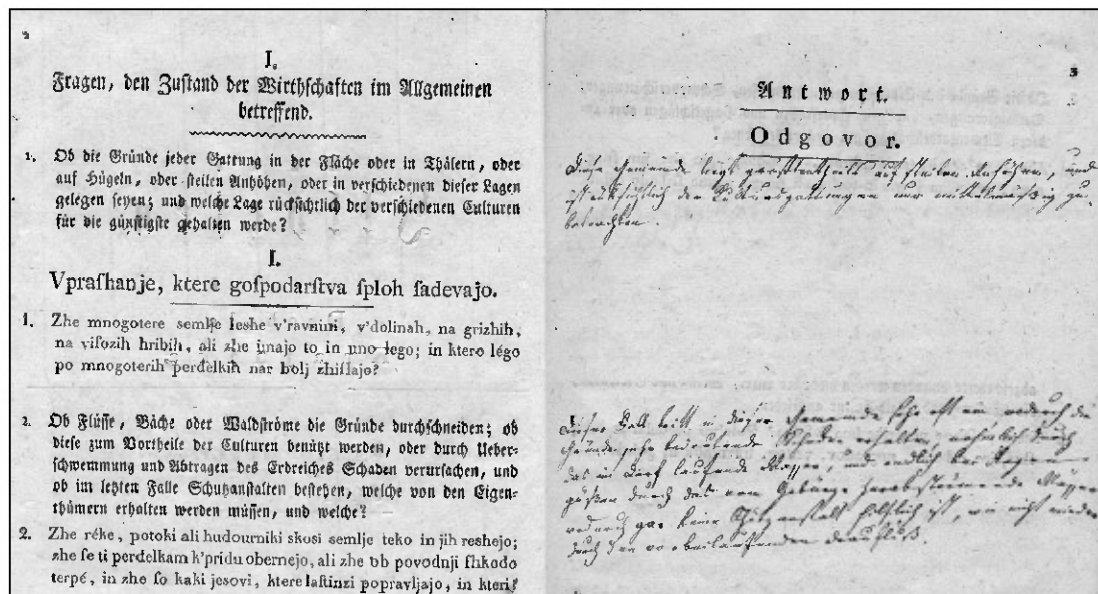 2
I.
Fragen, den Zuſtand der Wirthſchaften im Allgemeinen
betreffend.
1. Ob die Gründe jeder Gattung in der Fläche oder in Thälern, oder
auf Hügeln, oder ſteilen Anhöhen, oder in verſchiedenen dieſer Lagen
gelegen ſeyen; und welche Lage rückſichtlich der verſchiedenen Culturen
für die günſtigſte gehalten werde?
I.
Vpraſhanje, ktere goſpodarſtva ſploh ſadevajo.
1. Zhe mnogotere semlſe leshe v'ravnini, v'dolinah, na grizhih,
na viſozih hribih, ali zhe imajo to in uno lego; in ktero légo
po mnogoterih perdelkih nar bolj zhiſlajo?
2. Ob Flüſſe, Bäche oder Waldſtröme die Gründe durchſchneiden; ob
dieſe zum Vortheile der Culturen benützt werden, oder durch Ueber-
ſchwemmung und Abtragen des Erdreiches Schaden verurſachen, und
ob im letzten Falle Schutzanſtalten beſtehen, welche von den Eigen-
thümern erhalten werden müſſen, und welche?
2. Zhe réke, potoki ali hudourniki skosi semlje teko in jih reshejo;
zhe ſe ti perdelkam k'pridu obernejo, ali zhe ob povodnji ſhkodo
terpé, in zhe ſo kaki jesovi, ktere laſtinzi popravljajo, in kteri?
3
Antwort.
Odgovor.
Diese Gemeinde liegt größtentheils auf steilen Anhöhen, und
ist rücksichtlich der Culturgattungen nur mittelmässig zu
betrachten.
Dieser Fall tritt in dieser Gemeinde sehr oft ein wodurch die
Gründe sehr bedeutende Schaden erhalten, nahmlich durch
das im Dorf laufende Wasser, und endlich bei Regen-
güßen durch das vom Gebürge herabströmende Wasser
wodurch gar keine Schutzanstalt ist, wie nicht minder
durch den vorbeilaufenden